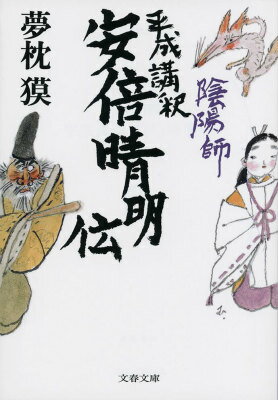 陰陽師
平成講釈
安倍晴明伝
夢枕獏
文春文庫